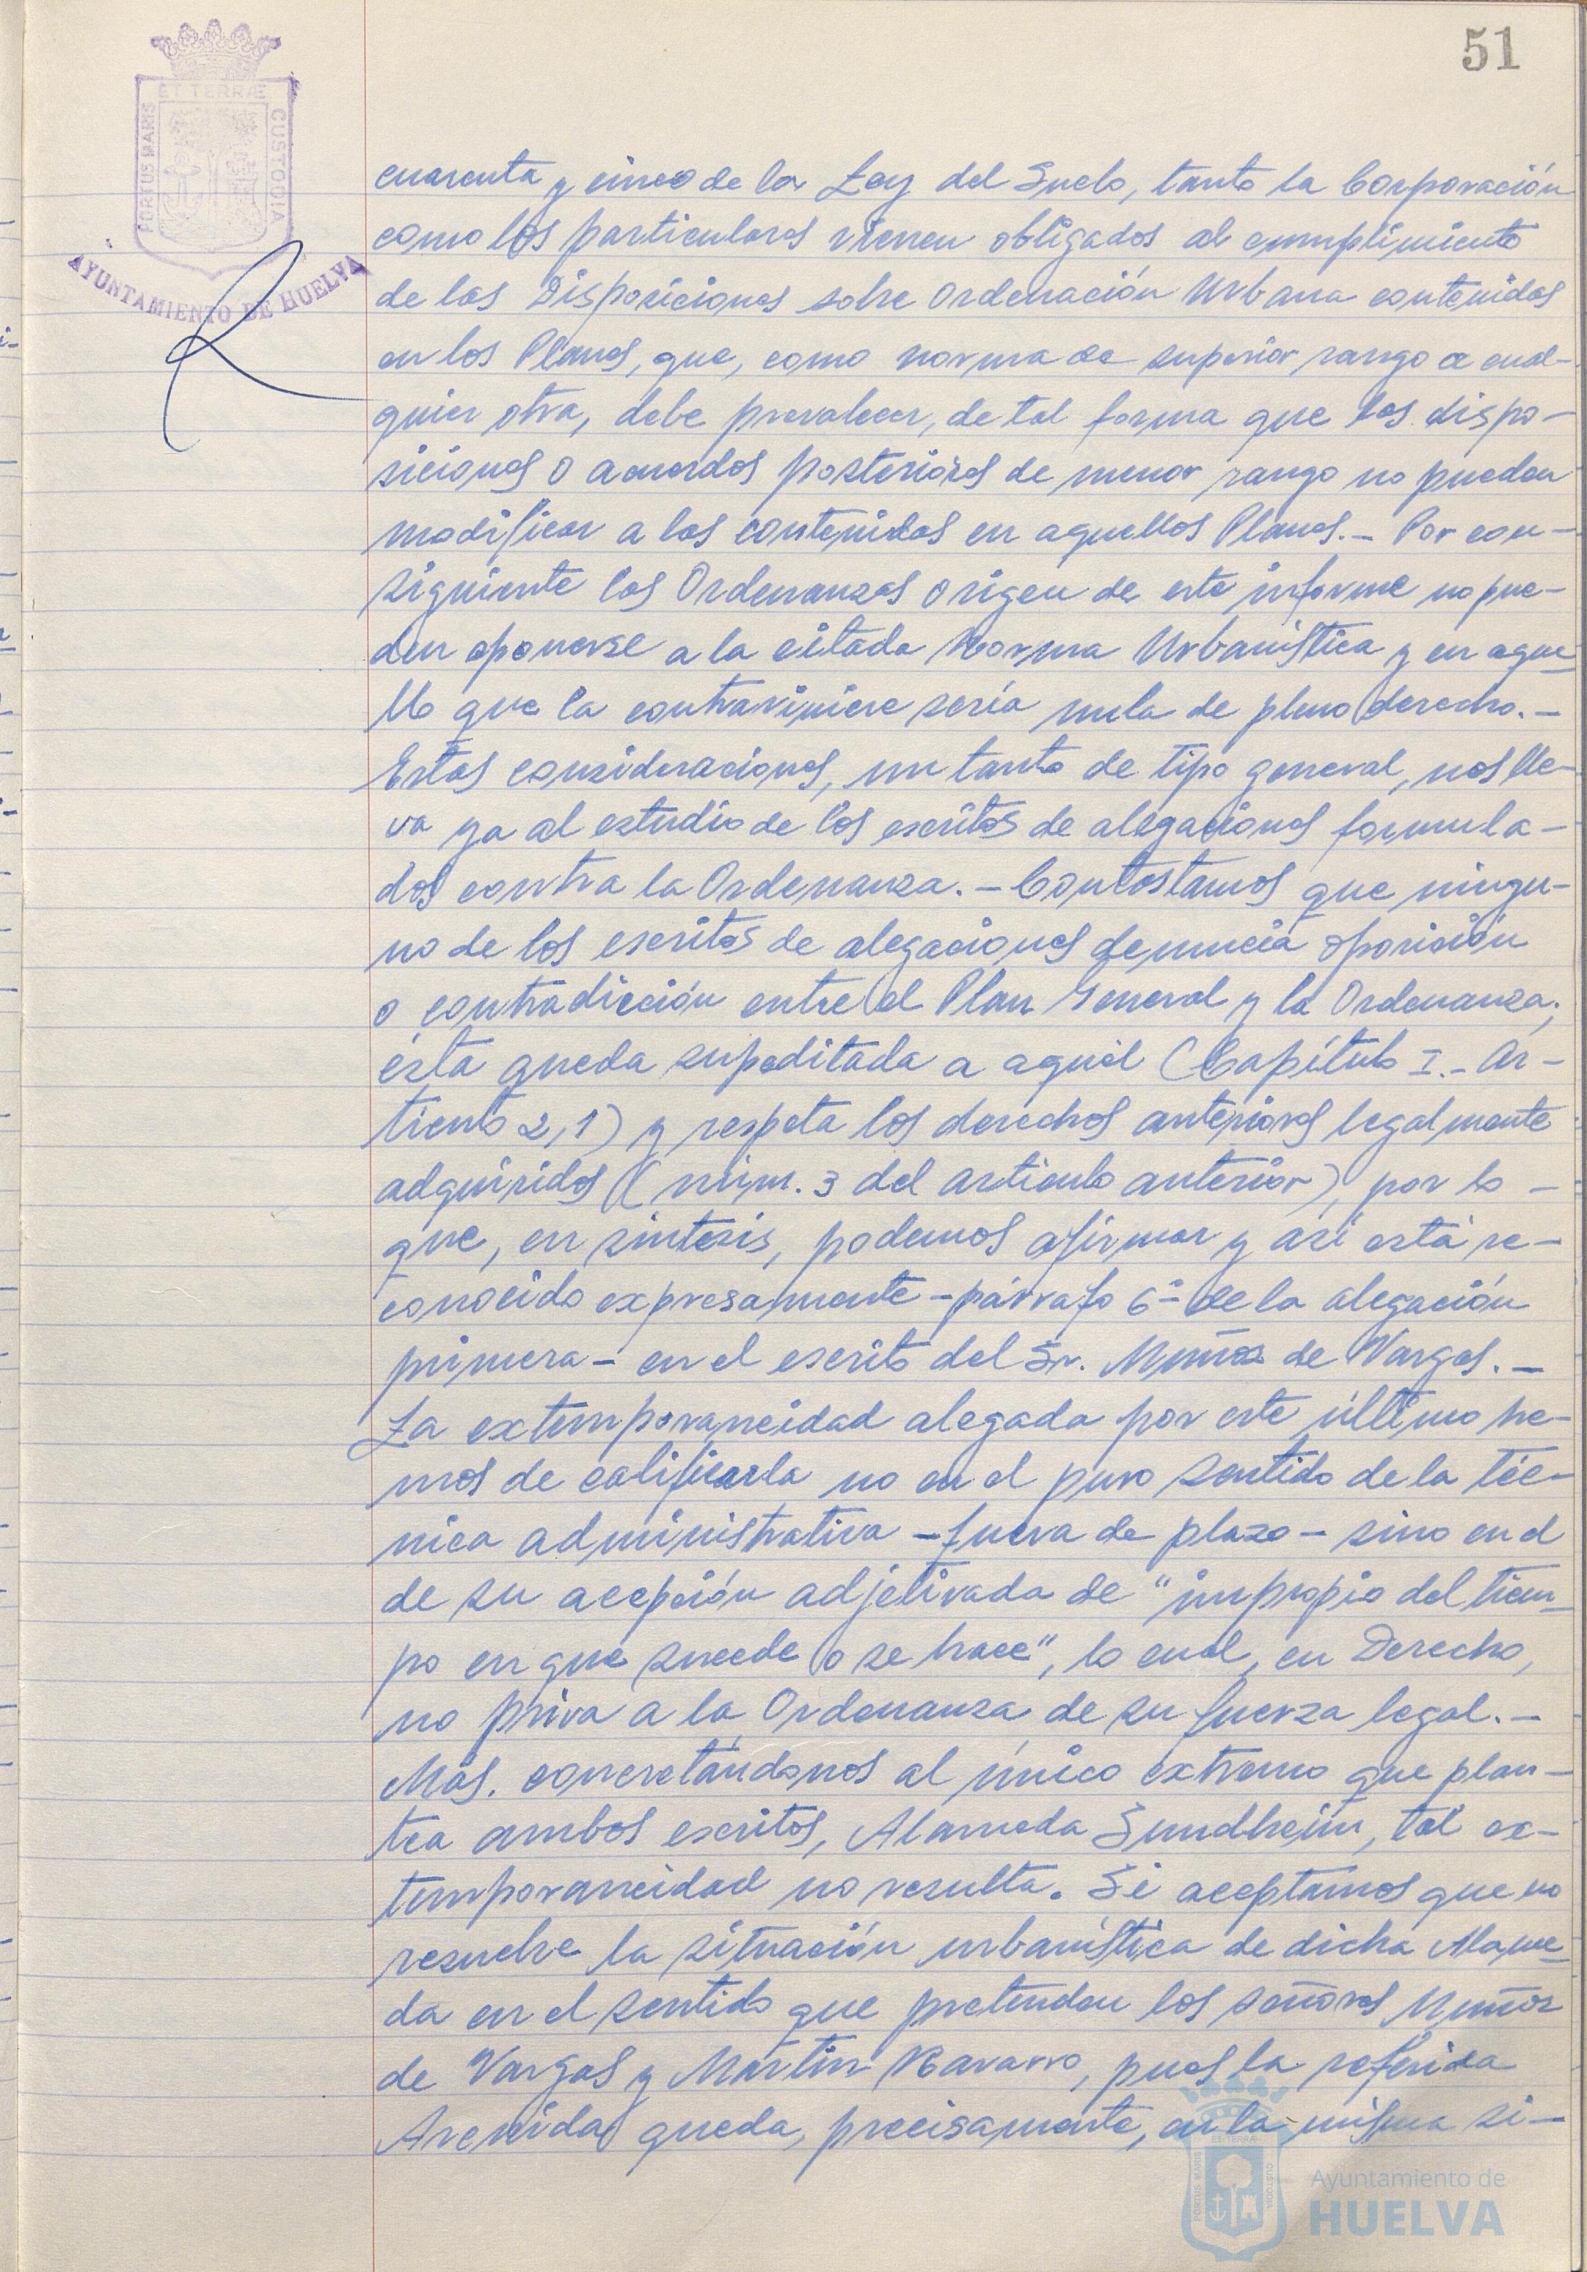 51
ET TERRÆ
PORTUS MARIS
CUSTODIA
AYUNTAMIENTO DE HUELVA
cuarenta y cinco de la Ley del Suelo, tanto la Corporación
como los particulares vienen obligados al cumplimiento
de las Disposiciones sobre Ordenación Urbana contenidas
en los Planes, que, como norma de superior rango a cual-
quier otra, debe prevalecer, de tal forma que las dispo-
siciones o acuerdos posteriores de menor rango no pueden
modificar a las contenidas en aquellos Planes.- Por con-
siguiente las Ordenanzas origen de este informe no pue-
den oponerse a la citada Norma Urbanística y en aque-
llo que la contraviniere sería nula de pleno derecho.-
Estas consideraciones, un tanto de tipo general, nos lle-
va ya al estudio de los escritos de alegaciones formula-
dos contra la Ordenanza.- Contestamos que ningu-
no de los escritos de alegaciones denuncia oposición
o contradicción entre el Plan General y la Ordenanza;
ésta queda supeditada a aquél (Capítulo I.- Ar-
tículo 2,1) y respeta los derechos anteriores legalmente
adquiridos (núm. 3 del artículo anterior), por lo -
que, en síntesis, podemos afirmar y así está re-
conocido expresamente -párrafo 6º de la alegación
primera- en el escrito del Sr. Muñoz de Vargas.-
La extemporaneidad alegada por este último he-
mos de calificarla no en el puro sentido de la téc-
nica administrativa -fuera de plazo- sino en el
de su acepción adjetivada de "impropio del tiem-
po en que sucede o se hace", lo cual, en Derecho,
no priva a la Ordenanza de su fuerza legal.-
Más. concretándonos al único extremo que plan-
tea ambos escritos, Alameda Sundheim, tal ex-
temporaneidad no resulta. Si aceptamos que no
resuelve la situación urbanística de dicha Alame-
da en el sentido que pretenden los señores Muñoz
de Vargas y Martín Navarro, pues la referida
Avenida queda, precisamente, en la misma si-
Ayuntamiento de
HUELVA